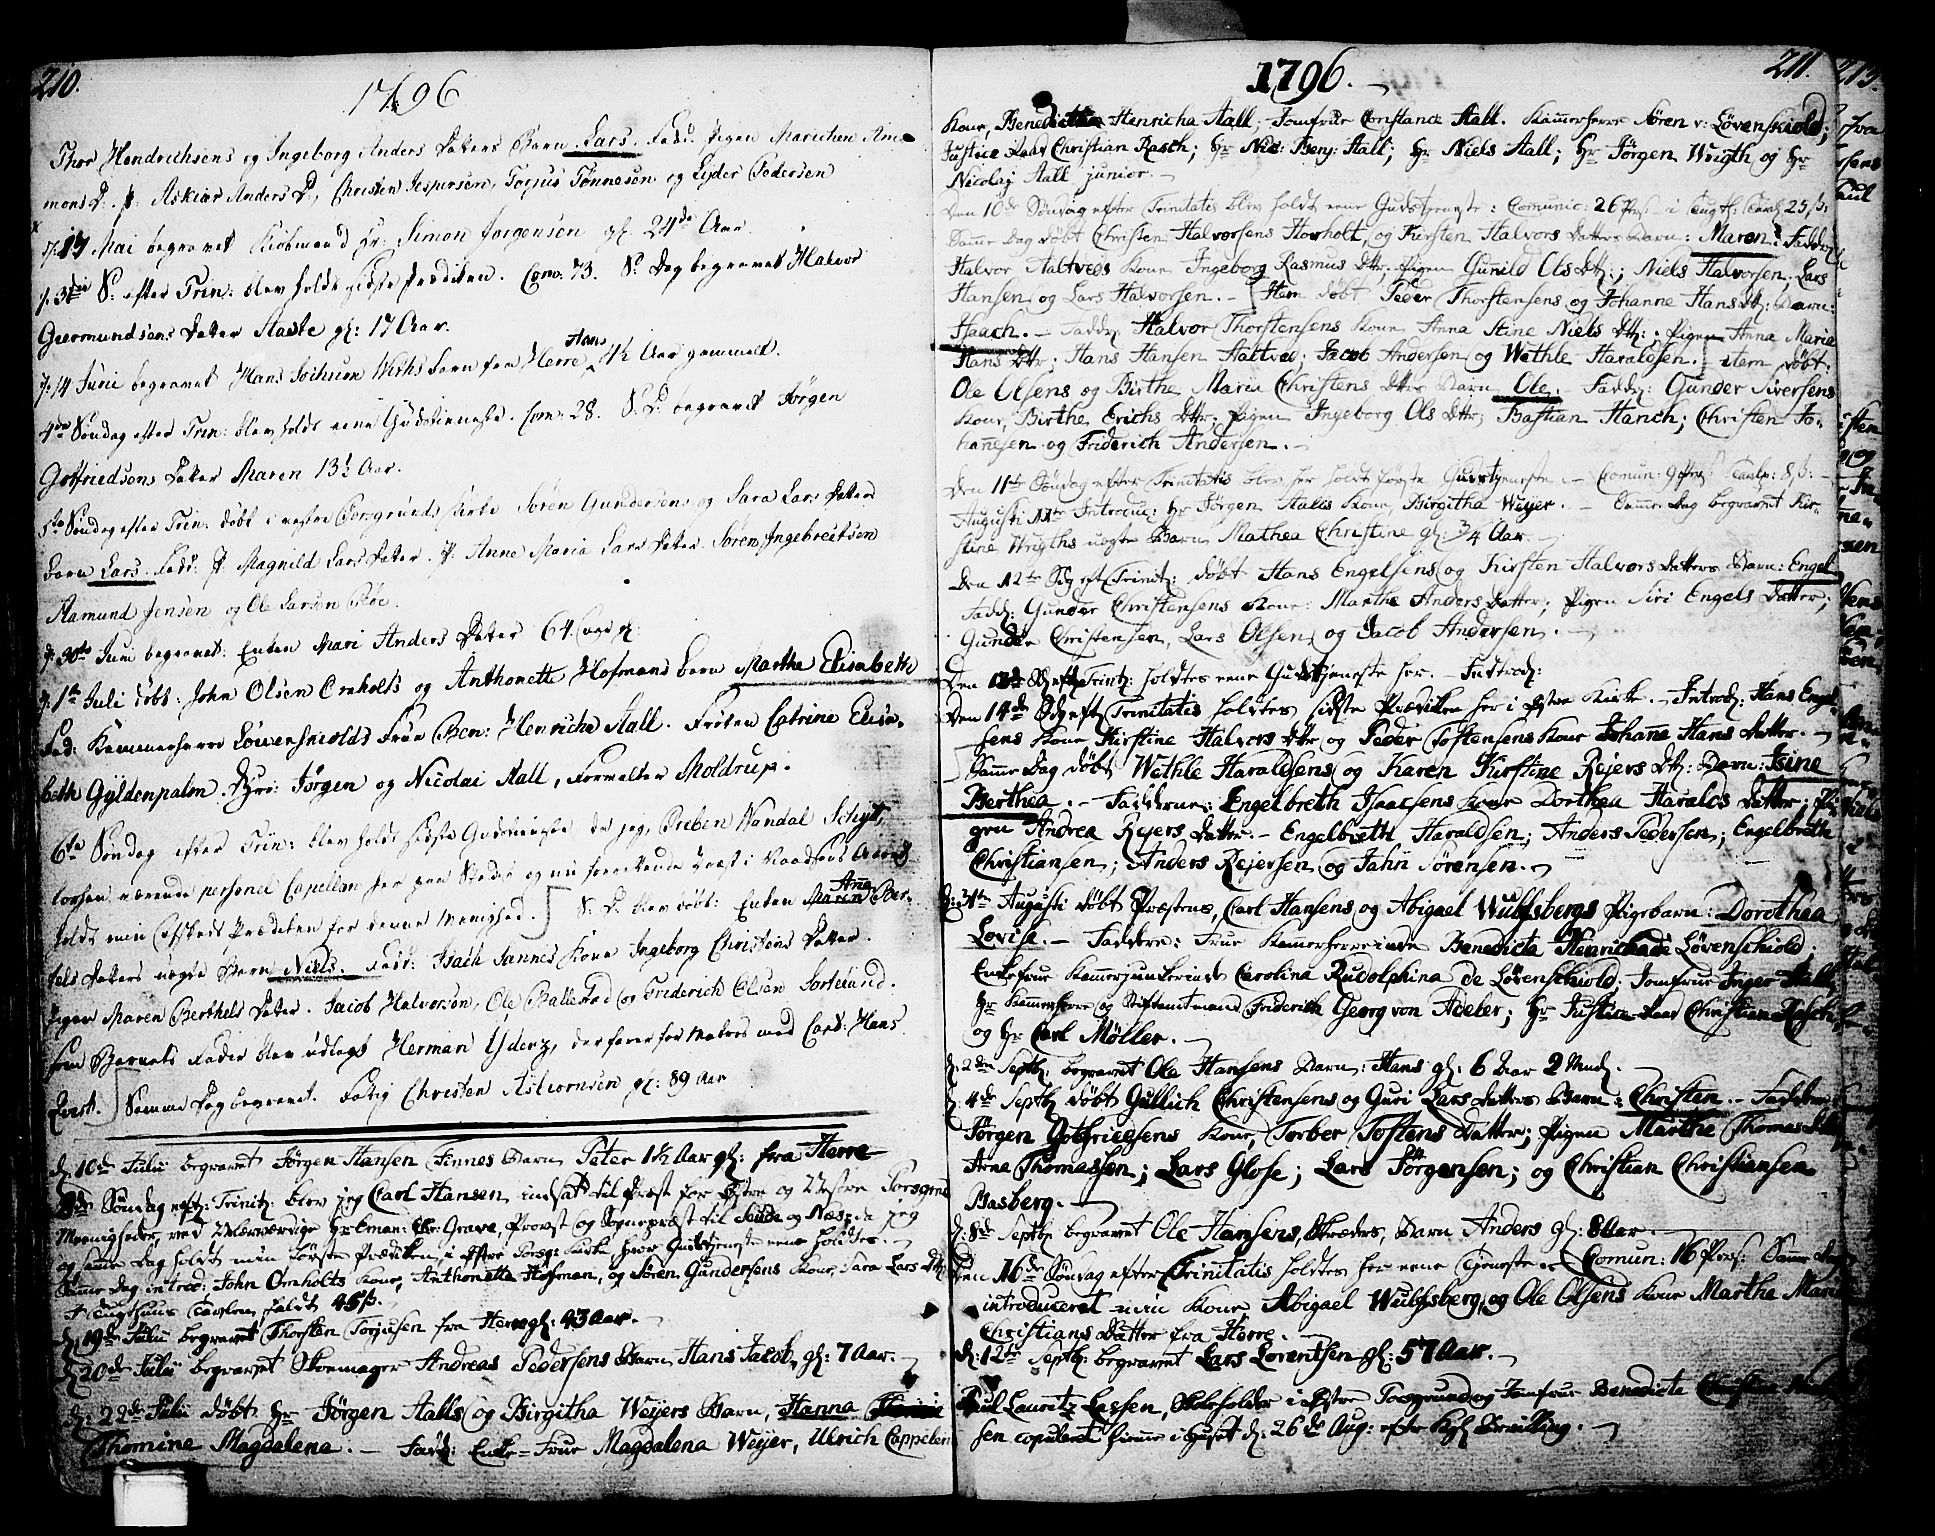 210.
1796
Thor Hendrichsens og Ingeborg Anders Datters Barn Lars. Fadd: Pigen Marichen Am-
mons D. P: Askier Anders D, Christen Jespersen, Torjus Tønnesen og Lyder Pedersen
d: 17 Mai begravet Kiøbmand Hr: Simon Jørgensen gl. 24de Aar
d: 3die S: efter Trin: blev holdt sidste Prædiken. Com: 73. S: Dag begravet Halvor
Giermundsens Datter Aaste gl: 17 Aar.
d: 14 Junii begravet Hans Jochum Withs Barn fra Herre Hans 1½ Aar gammelt.
4de Søndag efter Trin: blev holdt eene Gudstieneste. Com: 28. S: D: begravet Jørgen
Gotfriedsens Datter Maren 13½ Aar.
5te Søndag efter Trin: døbt i vestre Porsgrunds Kirke Søren Gundersens og Sara Lars Datters
Barn Lars. Fadd: P: Magnild Lars Datter. P. Anne Maria Lars Datter. Søren Ingebreitsen
Aamund Jensen og Ole Larsen Røe.
d: 30te Juni begravet: Enken Mari Anders Datter 64 Aar gl:
d: 1te Juli døbt: John Olsen Ornholts og Anthonette Hofmans Barn Martha Elisabeth
Fad: Kammerherre Løwenskiolds Frue Ben: Henriche Aall. Frøken Catrine Elisa-
beth Gyldenpalm. Hrr: Jørgen og Nicolai Aall, Forvalter Moldrup.
6te Søndag efter Trin: blev holdt sidste Gudstieneste, da jeg, Preben Wandal Schyt,
forhen værende personel Capellan her paa Stedet og nu Præst i Raadsens
holdt min Afskeds Prædiken for denne Menighed. S: D: blev døbt: Enken Maren Anne Ber-
tels Datters uægte Barn Niels. Fadd: Isach Jannes Kone Ingeborg Christens Datter.
Pigen Maren Berthels Datter. Jacob Halvorsen, Ole Ballestad og Friderich Olsen
som Barnets Fader blev udlagt Herman farer for Matros med Capt: Hans
Samme Dag begravet. Fattig Christen Asbiornsen gl: 89 Aar
d: 10de Julii begravet Jørgen Hansen Tinnes Barn Peter 1½ Aar gl: fra Herre
8de Søndag eft: Trinit: blev jeg Carl Hansen indsat til Præst for Østre og Vestre Porsgrund
Meenigheder, ved Velærværdige Hr Eman: Grave, Provst og Sognepræst til Solde og Næs; da jeg
og samme Dag holdt min første Prædiken, i Østre Porsg: Kirke, hvor Gudstjeneste eene holdtes.
Samme Dag introd: John Ornholts Kone, Anthonetta Hofman, og Søren Gundersens Kone, Sara Lars Dtr
Tugthuus Tavlen faldt 45 ß.
d: 19de Julii begravet Thorsten Torjusen fra Herre gl: 43 Aar.
d: 20de Julii begravet Skomager Andreas Pedersens Barn Hans Jacob, gl: 7 Aar.
d: 22de Julii døbt Hr Jørgen Aalls og Birgitha Weyers Barn, Hanna
Thomine Magdalena. Fadd: Enke-Frue Magdalena Weyer, Ulrich Cappelen
1796.
211.
Kone, Benedictha Henricha Aall; Jomfrue Constance Aall. Kamerherre Søren v: Løvenskiold;
Justice Raad Christian Rasch; Hr Nic: Benj: Aall; Hr Niels Aall; Hr Jörgen Wrigth og Hr
Nicolaj Aall junior.
Den 10de Søndag efter Trinitatis blev holdt eene Gudstjeneste: Comunic: 26 Pers: i Tugth: Tavl: 25 ß:
Samme Dag døbt Christen Halvorsens Hovholt, og Kirsten Halvors Datters Barn: Maren: Faddere
Halvor Aaltveds Kone Ingeborg Rasmus Dtr, Pigen Gunild Ols Dtr; Niels Halvorsen, Lars
Hansen og Lars Halvorsen. Item døbt Peder Thorstensens og Johanne Hans Dtr: Barn:
Isaach. Fadd: Halvor Thorstensens Kone Anna Stine Niels Dtr:; Pigen Anna Maria
Hans Dtr; Hans Hansen Aaltved; Jacob Andersen og Wethle Haraldsen. Item døbt:
Ole Olsens og Birthe Maria Christens Dtr Barn Ole. Fadd: Gunder Siversens
Kone, Birthe Erichs Dtr; Pigen Ingeborg Ols Dtr; Bastian Hanch; Christen Jo-
hanesen og Friderich Andersen.
Den 11te Søndag efter Trinitatis blev her holdt første Gudstjeneste. Comun: 9 Pers: Tavlp: 8 ß:
Augusti 11te Introdu: Hr Jørgen Aalls Kone, Birgitha Weyer. Samme Dag begravet Kir-
stine Wrigths uægte Barn Mathea Christine gl: 3/4 Aar.
Den 12te Sdg eft Trinit: døbt Hans Engelsens og Kirsten Halvors Datters Barn: Engel
Fadd: Gunder Christensens Kone: Marthe Anders Datter; Pigen Siri Engels Datter;
Gunder Christensen, Lars Olsen og Jacob Andersen.
Den 13de Sdg eft Trinit: holdtes eene Gudstjeneste her. Introd:
Den 14de Sdg eft Trinitatis holdtes sidste Prædiken her i Østre Kirke. Introd: Hans Engel-
sens Kone Kirstine Halvors Dtr og Peder Tostensens Kone Johane Hans Datter.
Samme Dag døbt Wethle Haraldsens og Karen Kirstine Rejers Dtr: Barn: Isine
Berthea. Fadderne: Engelbreth Isaacsens Kone Dorthea Haralds Datter; Pi-
gen Andrea Rejers Datter. Engelbreth Haraldsen; Anders Pedersen; Engelbreth
Christiansen; Anders Rejersen og Jahn Sørensen.
d: 31te Augusti døbt Præstens, Carl Hansens og Abigael Wulfsbergs Pigebarn: Dorothea
Lovise. Faddere: Frue Kamerherreinde Benedicta Henricha de Løvenschiold;
Enkefrue Kamerjunkerinde Carolina Rudolphina de Løvenschiold; Jomfrue Inger Aall;
Hr Kamerherre og Stiftamtmand Friderich Georg von Adeler; Hr Justice Raad Christian Rasch,
og Hr Carl Møller.
d: 2den Septb: begravet Ole Hansens Barn: Hans gl: 6 Aar 2 Mnd:
d: 4de Septb døbt Gullich Christensens og Guri Lars Datters Barn: Christen. Faddere
Jörgen Gotfriedsens Kone, Torber Tostens Datter; Pigen Marthe Thomas
Arne Thomassen; Lars Glose; Lars Jörgensen; og Christian Christiansen
Basberg.
d: 8de Septb begravet Ole Hansens, Skræders, Barn Anders gl: 8 Aar.
Den 16de Søndag efter Trinitatis holdtes her eene Tjeneste. Comun: 16 Pers: Samme Dag
introduceret min Kone Abigael Wulfsberg, og Ole Olsens Kone Marthe Maria
Christians Datter fra Herre.
d: 12te Septb: begravet Lars Lorentsen gl: 57 Aar.
Poul Lauritz Lassen, Skoleholder i Østre Porsgrund og Jomfrue Benedicte Christine
sen copuleret hieme i Huset d: 26de Aug: efter Kgl Bevilling.